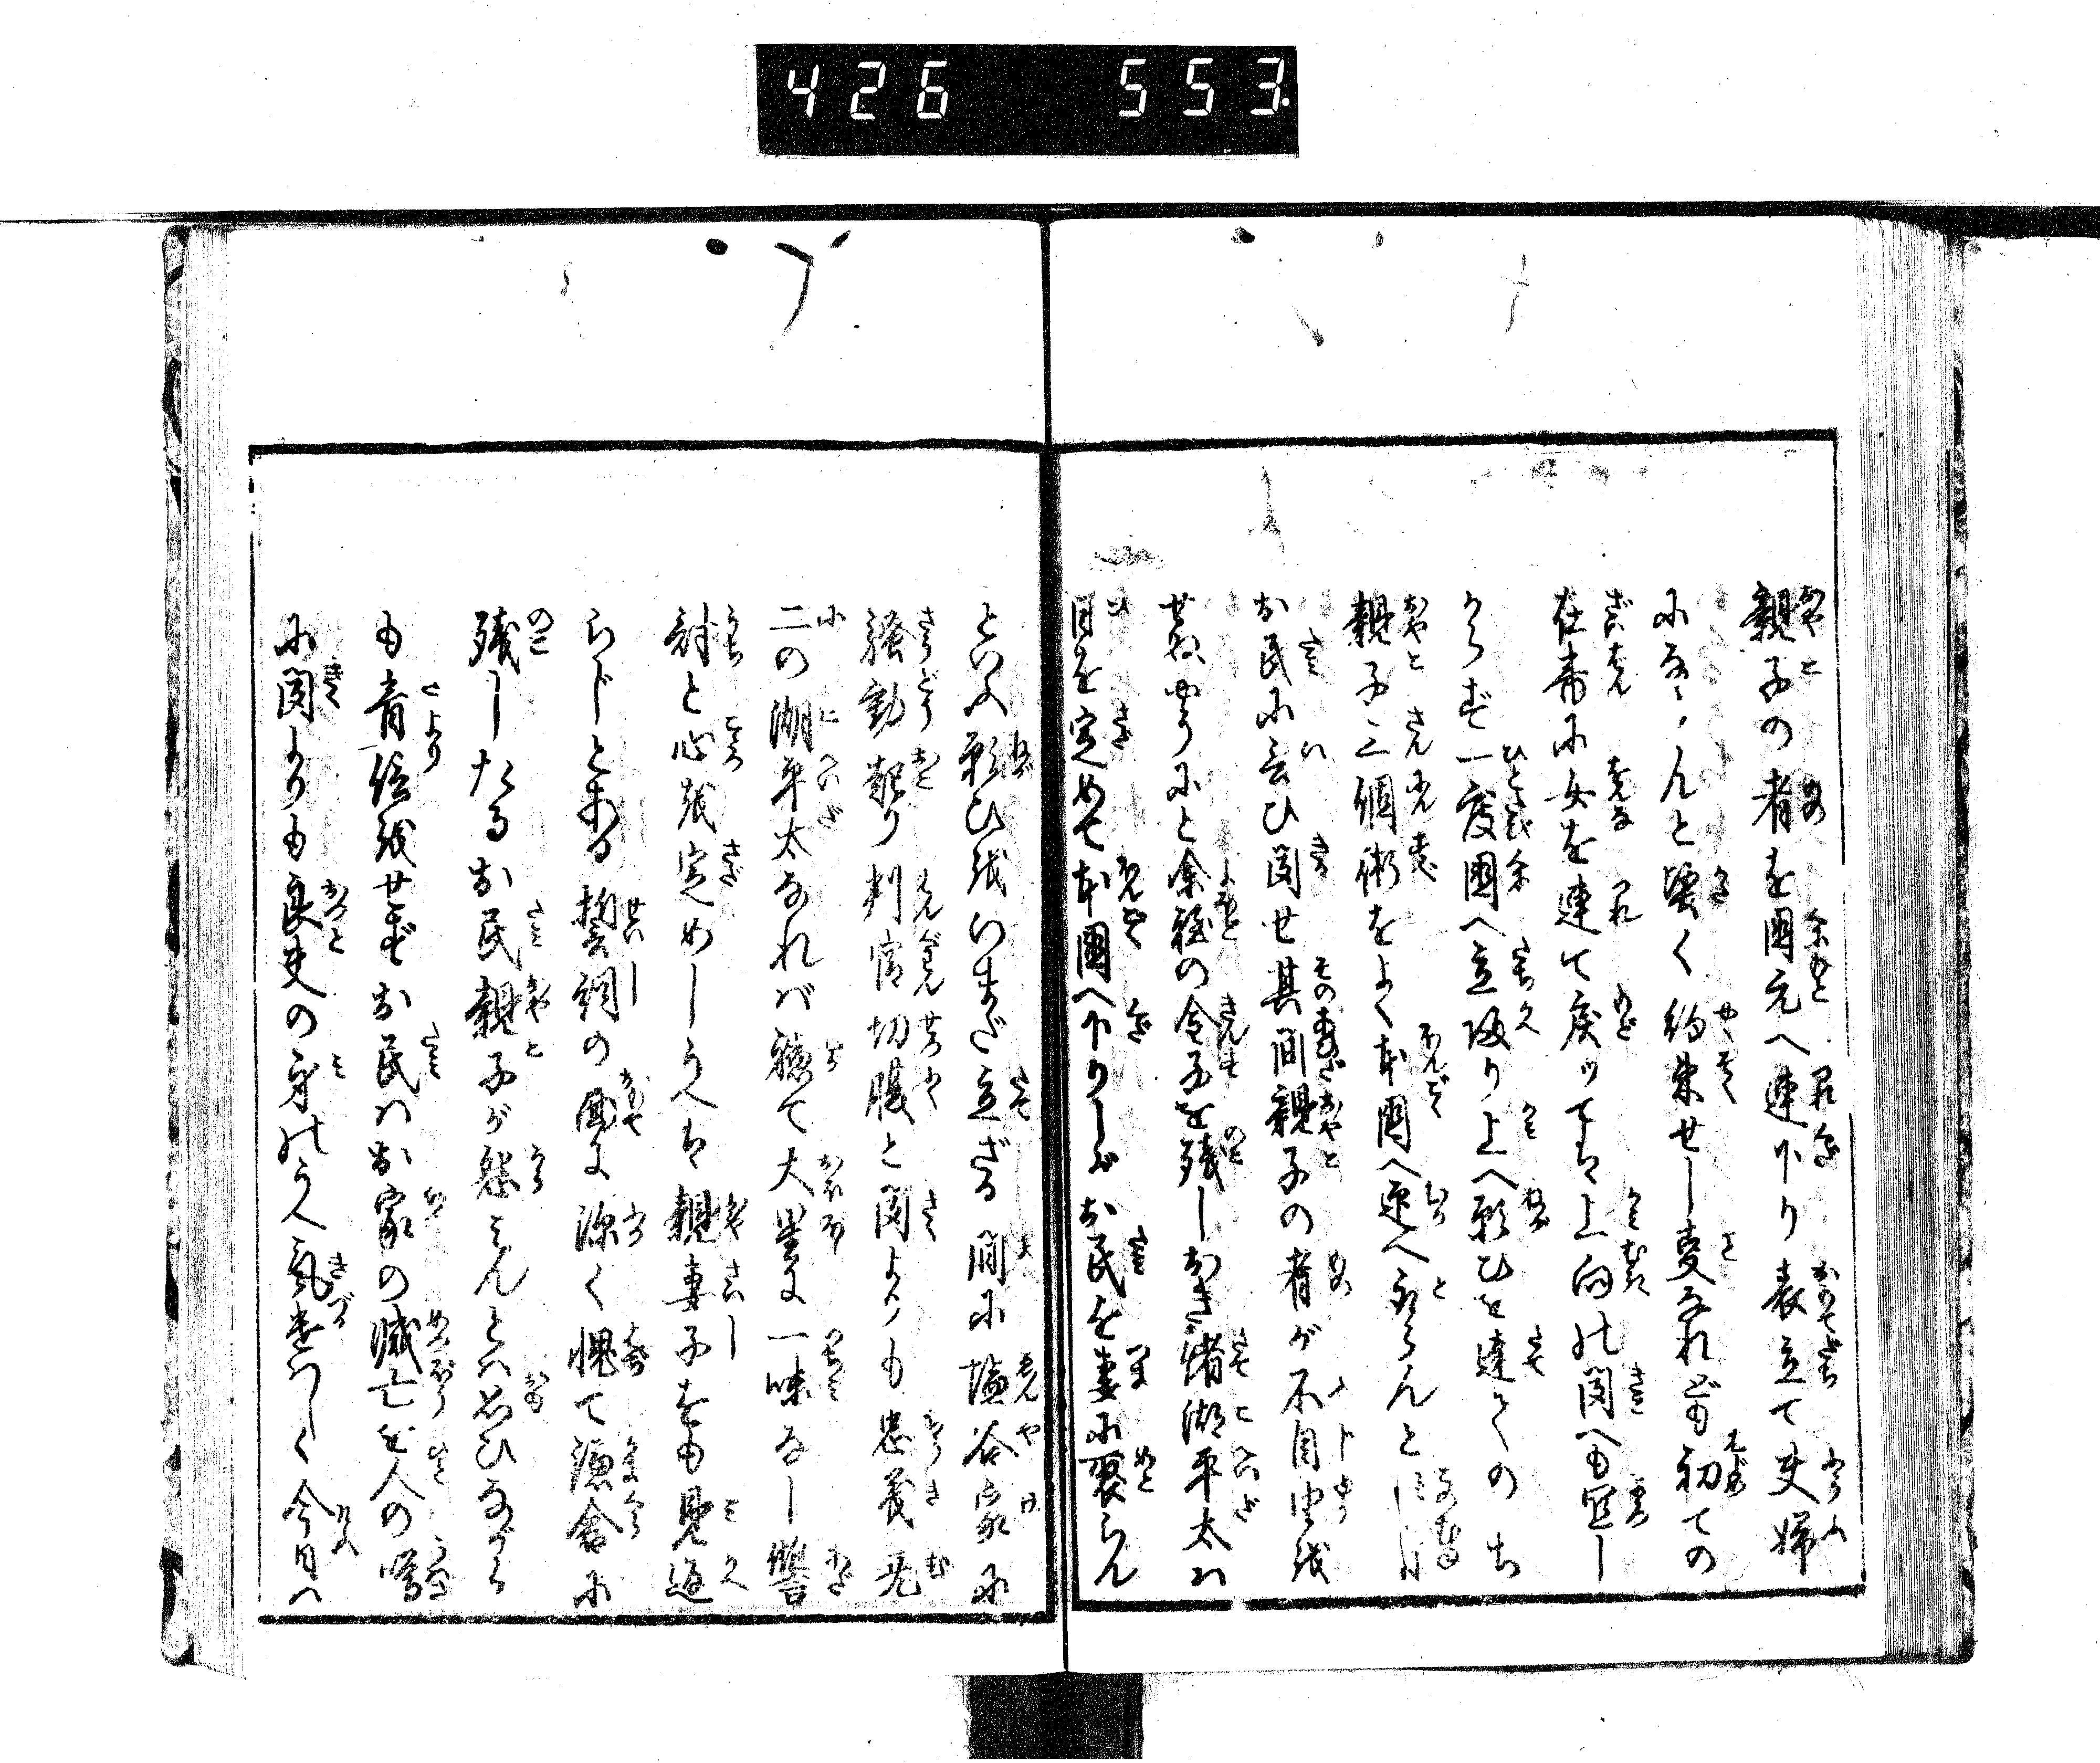 426 553
親子の者を国元へ連下り表立て夫婦
になさんと堅く約束せし事なれども初ての
在番に女を連て戻ッては上向の聞へも宜し
からず一度国へ立皈り上へ願ひを達てのち
親子三個術をよく本国へ迎へ取らんと
お民に言ひ聞せ其間親子の者が不自由を
せぬやうにと余程の金子を残しおき猪湖平太は
日を定めて本国へ下りしがお民を妻に娶らん
といふ願ひをいまだ立ざる間に塩谷家に
騒動起り判官切腹と聞よりも忠義無
二の湖平太なれば頓て大星に一味なし讐
討と心を定めしうへは親妻子をも見返
らじとある誓詞の面に深く愧て鎌倉に
残したるお民親子が愁こんとは思ひながら
も音信をせずお民はお家の滅亡を人の噂
に聞よりも良夫の身のうへ気遣はしく今日へ